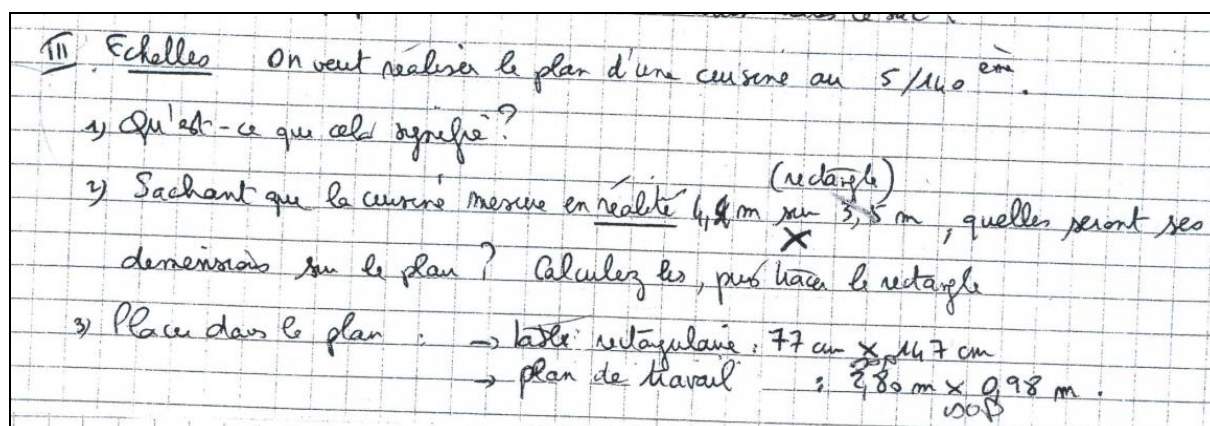 III Echelles On veut réaliser le plan d'une cuisine au 5/140 ème.
1) Qu'est-ce que cela signifie ?
(rectangle)
2) Sachant que la cuisine mesure en réalité 4,2 m sur 3,5 m, quelles seront ses
×
dimensions sur le plan ? Calculez les, puis tracer le rectangle
3) Placer dans le plan : → table rectangulaire : 77 cm × 147 cm
→ plan de travail : 2,80 m × 0,98 m.